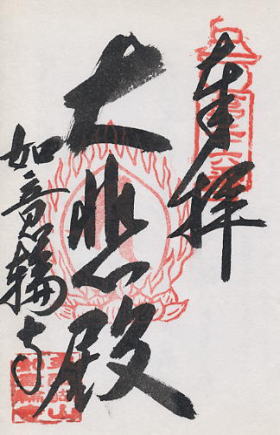 奉拝
大悲殿
如意輪寺